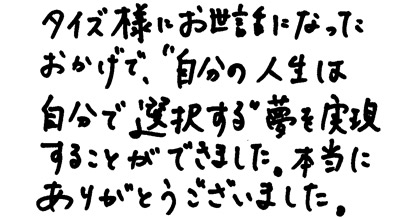 タイズ様にお世話になった
おかげで、"自分の人生は
自分で選択する"夢を実現
することができました。本当に
ありがとうございました。